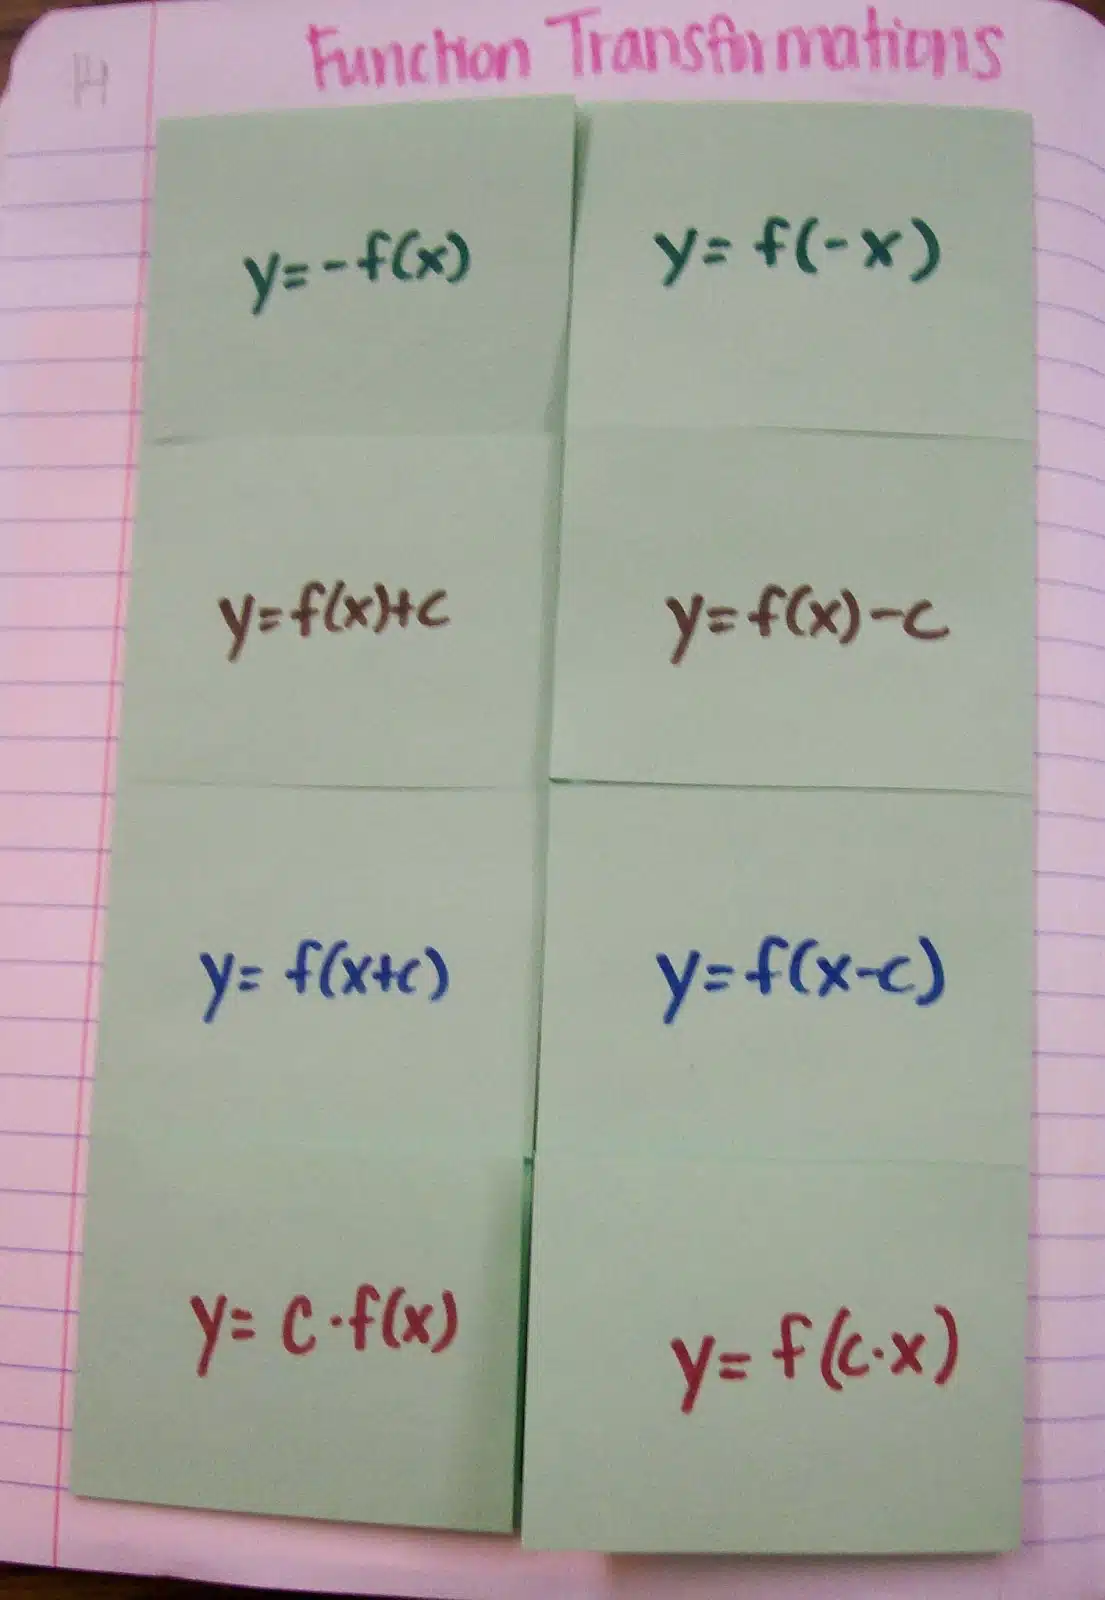 Function Transformations
y=-f(x)
y= f(-x)
y=f(x)+c
y=f(x)-c
y= f(x+c)
y=f(x-c)
y= c·f(x)
y= f(c·x)